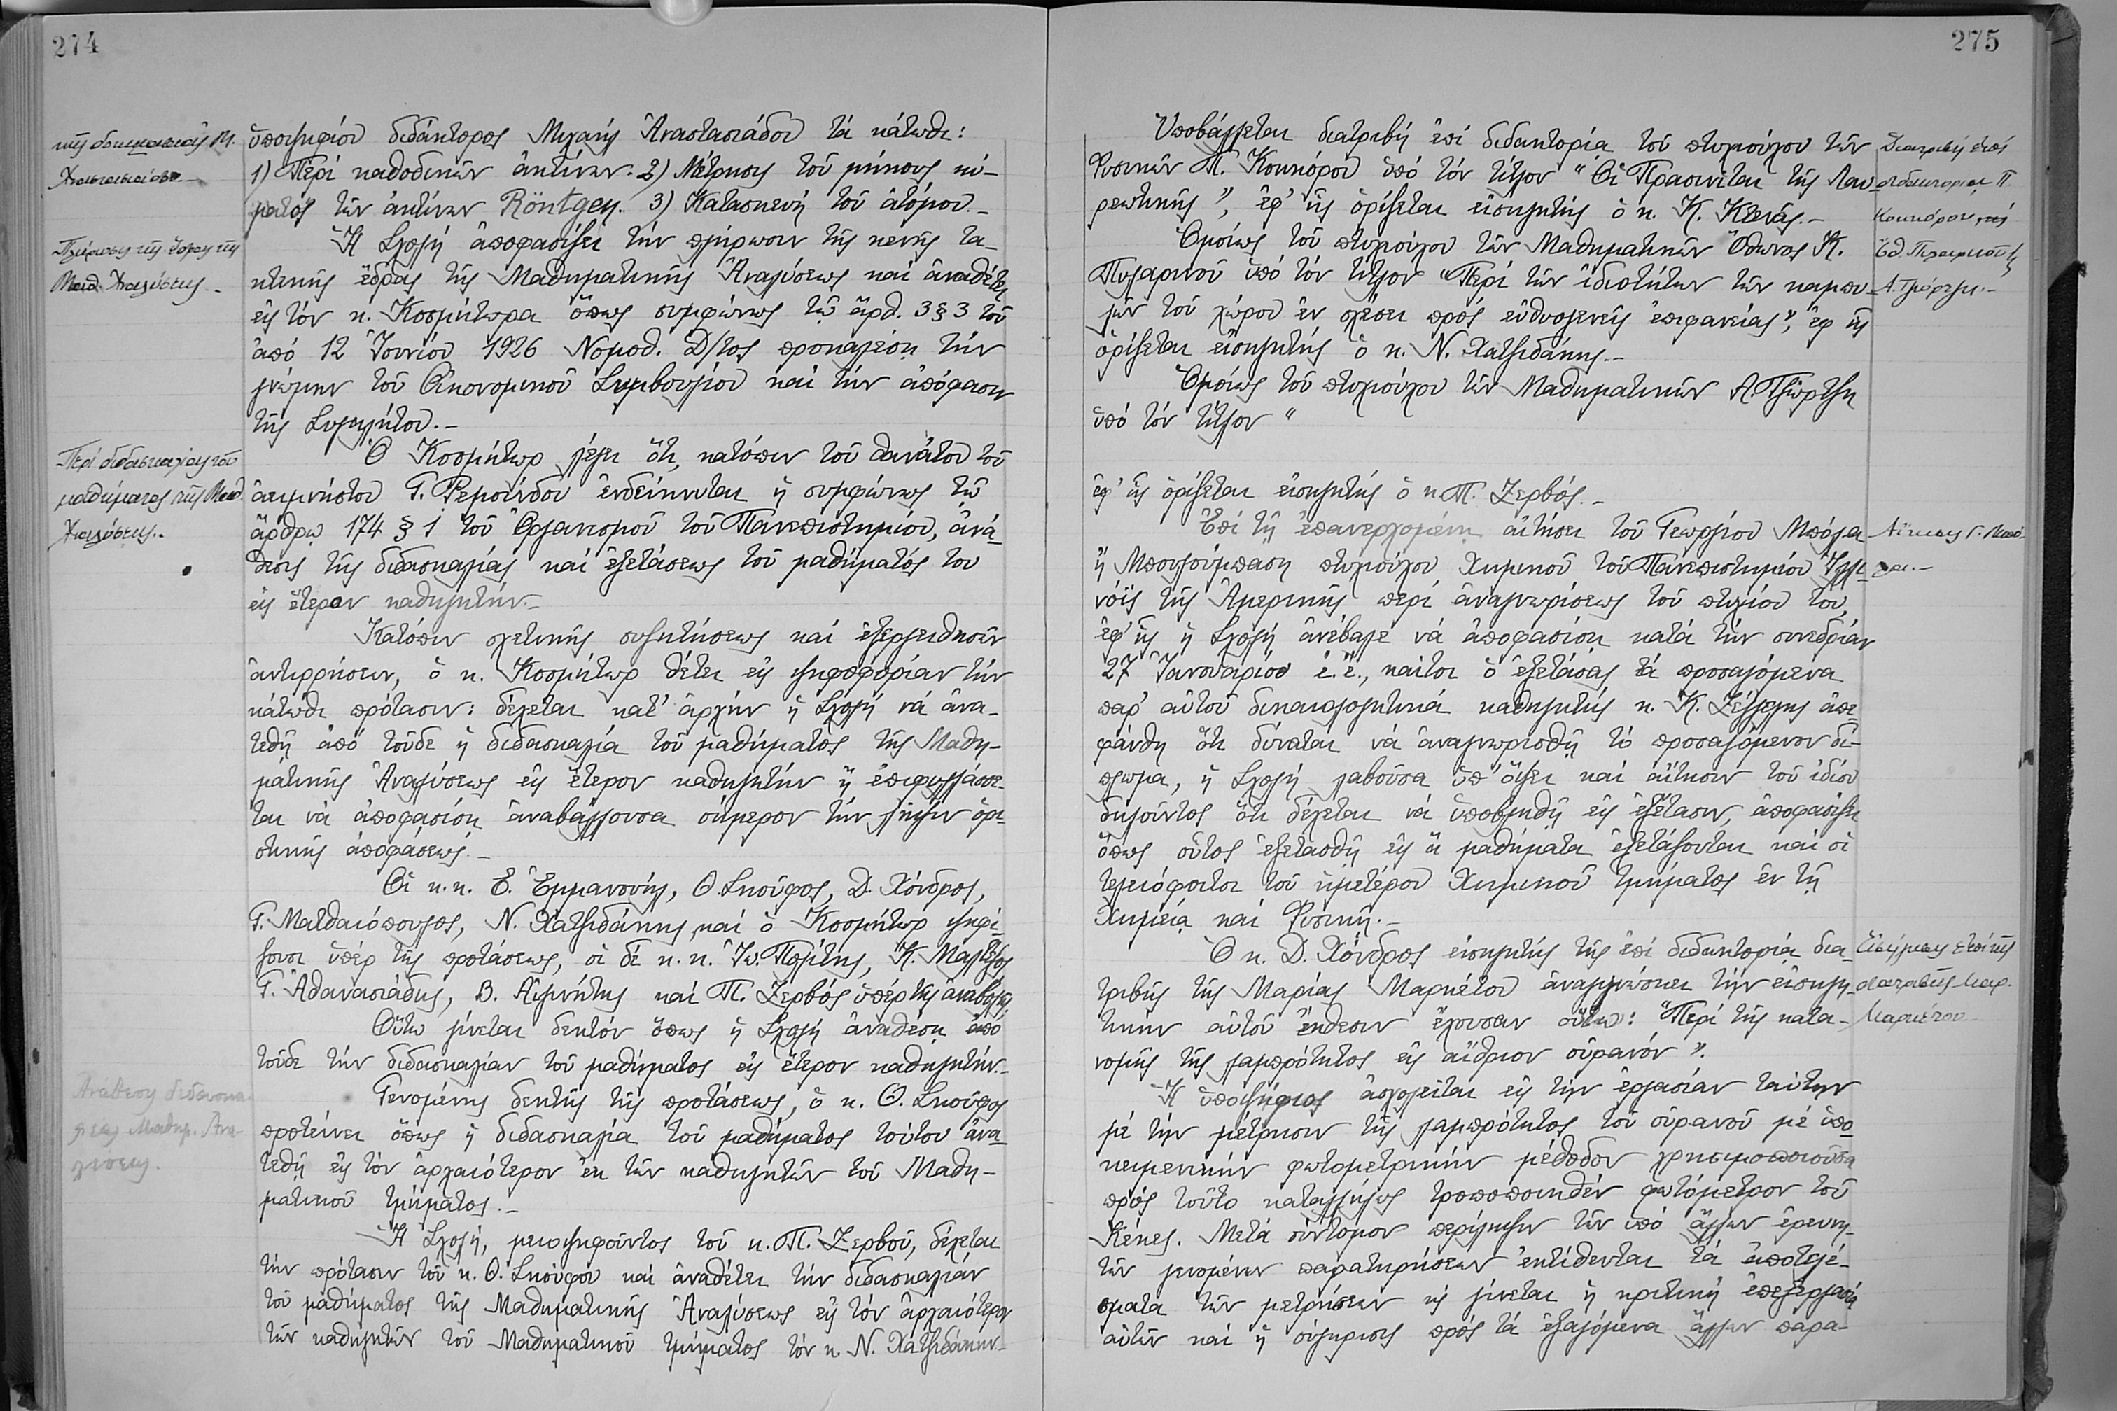 274
τῆς δοκιμασίας Μ.
Ἀναστασιάδου.-
ὑποψηφίου διδάκτορος Μιχαήλ Ἀναστασιάδου τά κάτωθι:
1) Περί καθοδικῶν ἀκτίνων. 2) Μέτρησις τοῦ μήκους κύ-
ματος τῶν ἀκτίνων Röntgen. 3) Κατασκευή τοῦ ἀτόμου.-
Πλήρωσις τῆς ἕδρας τῆς
Μαθ. Ἀναλύσεως.-
Ἡ Σχολή ἀποφασίζει τήν πλήρωσιν τῆς κενῆς τα-
κτικῆς ἕδρας τῆς Μαθηματικῆς Ἀναλύσεως καί ἀναθέτει
εἰς τόν κ. Κοσμήτορα ὅπως συμφώνως τῷ ἄρθ. 3 § 3 τοῦ
ἀπό 12 Ἰουνίου 1926 Νομοθ. Δ/τος προκαλέσῃ τήν
γνώμην τοῦ Οἰκονομικοῦ Συμβουλίου καί τήν ἀπόφασιν
τῆς Συγκλήτου.-
Περί διδασκαλίας τοῦ
μαθήματος τῆς Μαθ.
Ἀναλύσεως.-
Ὁ Κοσμήτωρ λέγει ὅτι, κατόπιν τοῦ θανάτου τοῦ
ἀειμνήστου Γ. Ρεμούνδου ἐνδείκνυται ἡ συμφώνως τῷ
ἄρθρῳ 174 § 1 τοῦ Ὀργανισμοῦ τοῦ Πανεπιστημίου, ἀνά-
θεσις τῆς διδασκαλίας καί ἐξετάσεως τοῦ μαθήματός του
εἰς ἕτερον καθηγητήν.-
Κατόπιν σχετικῆς συζητήσεως καί ἐξεγερθεισῶν
ἀντιρρήσεων, ὁ κ. Κοσμήτωρ θέτει εἰς ψηφοφορίαν τήν
κάτωθι πρότασιν: δέχεται κατ' ἀρχήν ἡ Σχολή νά ἀνα-
τεθῇ ἀπό τοῦδε ἡ διδασκαλία τοῦ μαθήματος τῆς Μαθη-
ματικῆς Ἀναλύσεως εἰς ἕτερον καθηγητήν ἤ ἐπιφυλλάσσε-
ται νά ἀποφασίσῃ ἀναβάλλουσα σήμερον τήν λῆψιν ὁρι-
στικῆς ἀποφάσεως.-
Οἱ κ.κ. Ἐ. Ἐμμανουήλ, Θ. Σκοῦφος, Δ. Χόνδρος,
Γ. Ματθαιόπουλος, Ν. Χατζιδάκης καί ὁ Κοσμήτωρ ψηφί-
ζουσι ὑπέρ τῆς προτάσεως, οἱ δέ κ.κ. Ἰω. Πολίτης, Κ. Μαλτέζος
Γ. Ἀθανασιάδης, Β. Αἰγινήτης καί Π. Ζερβός ὑπέρ τῆς ἀναβολῆς.
Οὕτω γίνεται δεκτόν ὅπως ἡ Σχολή ἀναθέσῃ ἀπό
τοῦδε τήν διδασκαλίαν τοῦ μαθήματος εἰς ἕτερον καθηγητήν.-
Ἀνάθεσις διδασκα-
λίας Μαθημ. Ἀνα-
λύσεως.
Γενομένης δεκτῆς τῆς προτάσεως, ὁ κ. Θ. Σκοῦφος
προτείνει ὅπως ἡ διδασκαλία τοῦ μαθήματος τούτου ἀνα-
τεθῇ εἰς τόν ἀρχαιότερον ἐκ τῶν καθηγητῶν τοῦ Μαθη-
ματικοῦ τμήματος.-
Ἡ Σχολή, μειοψηφοῦντος τοῦ κ. Π. Ζερβοῦ, δέχεται
τήν πρότασιν τοῦ κ. Θ. Σκούφου καί ἀναθέτει τήν διδασκαλίαν
τοῦ μαθήματος τῆς Μαθηματικῆς Ἀναλύσεως εἰς τόν ἀρχαιότερον
τῶν καθηγητῶν τοῦ Μαθηματικοῦ τμήματος τόν κ. Ν. Χατζιδάκην.-
275
Ὑποβάλλεται διατριβή ἐπί διδακτορίᾳ τοῦ πτυχιούχου τῶν
Φυσικῶν Π. Κοκκόρου ὑπό τόν τίτλον "Οἱ Πρασινῖται τῆς Λαυ-
ρεωτικῆς", ἐφ' ἧς ὁρίζεται εἰσηγητής ὁ κ. Κ. Κτενᾶς.-
Ὁμοίως τοῦ πτυχιούχου τῶν Μαθηματικῶν Ὄθωνος Κ.
Πυλαρινοῦ ὑπό τόν τίτλον "Περί τῶν ἰδιοτήτων τῶν καμπυ-
λῶν τοῦ χώρου ἐν σχέσει πρός εὐθυογενεῖς ἐπιφανείας", ἐφ' ἧς
ὁρίζεται εἰσηγητής ὁ κ. Ν. Χατζιδάκης.-
Ὁμοίως τοῦ πτυχιούχου τῶν Μαθηματικῶν Α. Τζώρτζη
ὑπό τόν τίτλον "
ἐφ' ἧς ὁρίζεται εἰσηγητής ὁ κ. Π. Ζερβός.-
Διατριβή ἐπί
διδακτορίᾳ Π.
Κοκκόρου, καί
Ὀθ. Πυλαρινοῦ
Α. Τζώρτζη.-
Ἐπί τῇ ἐπανερχομένῃ αἰτήσει τοῦ Γεωργίου Μπόγρα
ἤ Μπουλούμπαση πτυχιούχου Χημικοῦ τοῦ Πανεπιστημίου Ἰλλι-
νόϊς τῆς Ἀμερικῆς περί ἀναγνωρίσεως τοῦ πτυχίου του,
ἐφ' ἧς ἡ Σχολή ἀνέβαλε νά ἀποφασίσῃ κατά τήν συνεδρίαν
27 Ἰανουαρίου ἐ.ἔ., καίτοι ὁ ἐξετάσας τά προσαγόμενα
παρ' αὐτοῦ δικαιολογητικά καθηγητής κ. Κ. Ζέγγελης ἀπε-
φάνθη ὅτι δύναται νά ἀναγνωρισθῇ τό προσαγόμενον δί-
πλωμα, ἡ Σχολή λαβοῦσα ὑπ' ὄψει καί αἴτησιν τοῦ ἰδίου
δηλοῦντος ὅτι δέχεται νά ὑποβληθῇ εἰς ἐξέτασιν, ἀποφασίζει
ὅπως οὗτος ἐξετασθῇ εἰς ἅ μαθήματα ἐξετάζονται καί οἱ
τελειόφοιτοι τοῦ ἡμετέρου Χημικοῦ τμήματος ἐν τῇ
Χημείᾳ καί Φυσικῇ.-
Αἴτησις Γ. Μπό-
γρα.-
Ὁ κ. Δ. Χόνδρος εἰσηγητής τῆς ἐπί διδακτορίᾳ δια-
τριβῆς τῆς Μαρίας Μαρκέτου ἀναγινώσκει τήν εἰσηγη-
τικήν αὐτοῦ ἔκθεσιν ἔχουσαν οὕτω: "Περί τῆς κατα-
νομῆς τῆς λαμπρότητος εἰς αἴθριον οὐρανόν".
Εἰσήγησις ἐπί τῆς
διατριβῆς Μαρ.
Μαρκέτου
Ἡ ὑποψήφιος ἀσχολεῖται εἰς τήν ἐργασίαν ταύτην
μέ τήν μέτρησιν τῆς λαμπρότητος τοῦ οὐρανοῦ μέ ὑπο-
κειμενικήν φωτομετρικήν μέθοδον χρησιμοποιοῦσα
πρός τοῦτο καταλλήλως τροποποιηθέν φωτόμετρον τοῦ
Κένες. Μετά σύντομον περίληψιν τῶν ὑπό ἄλλων ἐρευνη-
τῶν γενομένων παρατηρήσεων ἐκτίθενται τά ἀποτελέ-
σματα τῶν μετρήσεων καί γίνεται ἡ κριτική ἐπεξεργασία
αὐτῶν καί ἡ σύγκρισις πρός τά ἐξαγόμενα ἄλλων παρα-